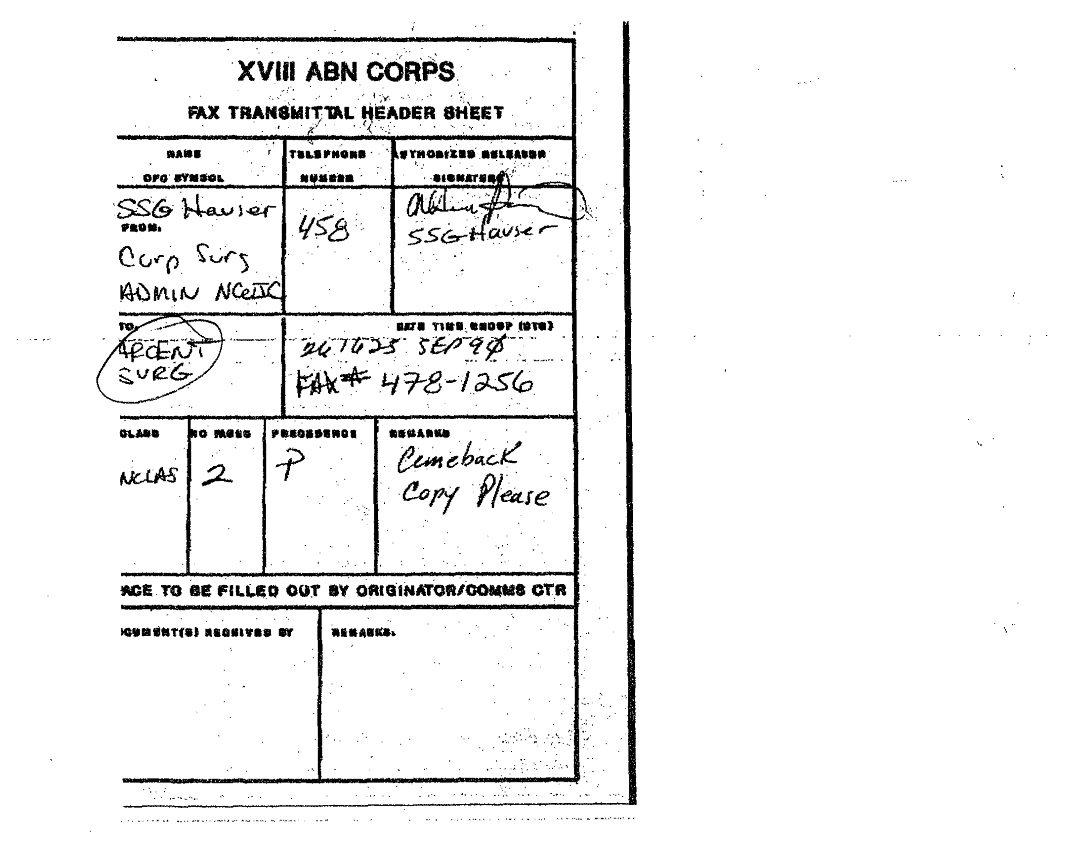 XVIII ABN CORPS
FAX TRANSMITTAL HEADER SHEET
NAME
OFC SYMBOL
TELEPHONE
NUMBER
AUTHORIZED RELEASER
SIGNATURE
SSG Hauser
FROM:
Corp Surg
ADMIN NCOIC
458
SSG Hauser
TO:
ARCENT
SURG
DATE TIME GROUP (DTG)
261625 SEP 90
FAX# 478-1256
CLASS
NO PAGES
PRECEDENCE
REMARKS
NCLAS
2
P
Comeback
Copy Please
ACE TO BE FILLED OUT BY ORIGINATOR/COMMS CTR
OCUMENT(S) RECEIVED BY
REMARKS: